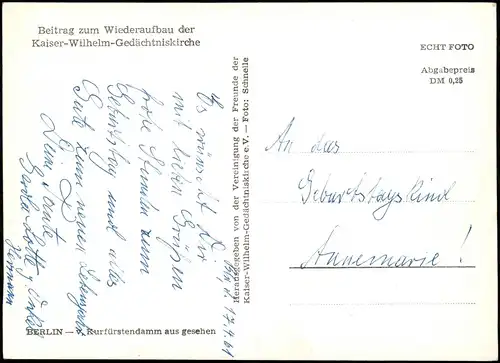 Beitrag zum Wiederaufbau der
Kaiser-Wilhelm-Gedächtniskirche
ECHT FOTO
Abgabepreis
DM 0,25
Bln, d. 17.4.61
Es wünscht Dir
mit lieben Grüßen
frohe Stunden zum
Geburtstag und alles
Gute zum neuen Lebensjahr
Deine Tante
Gerda-Lotte, Onkel
Hermann
Herausgegeben von der Vereinigung der Freunde der
Kaiser-Wilhelm-Gedächtniskirche e.V. — Foto: Schnelle
An das
Geburtstagskind
Annemarie!
BERLIN — Kurfürstendamm aus gesehen